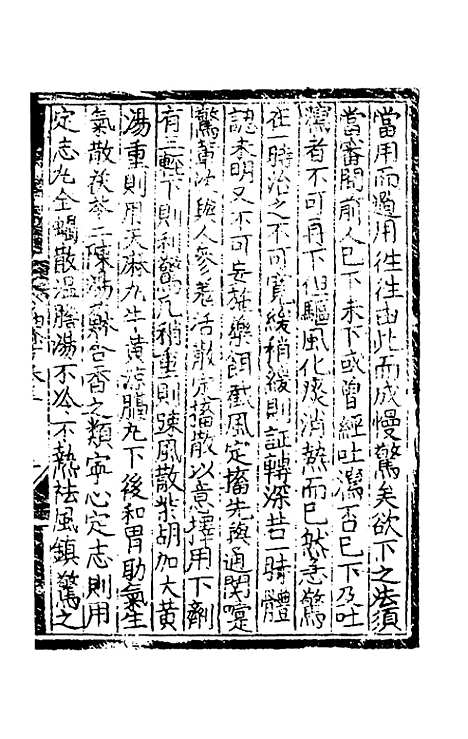 當用而過用往往由此而成慢驚矣欲下之法須
當審問前人已下未下或曾經吐瀉否已下及吐
瀉者不可再下但驅風化痰消熱而已然急驚
在一時治之不可寬緩稍緩則証轉深若一時體
認未明又不可妄施藥餌截風定搐先與通関嚏
驚黃 與人參羌活散定搐散以意擇用下劑
有三輕下則利驚丸稍重則疎風散柴胡加大黃
湯重則用天麻丸牛黃涼膈丸下後和胃助氣生
氣散茯苓二陳湯 合香之類寧心定志則用
定志丸全蝎散温膽湯不冷不熱祛風鎮驚之